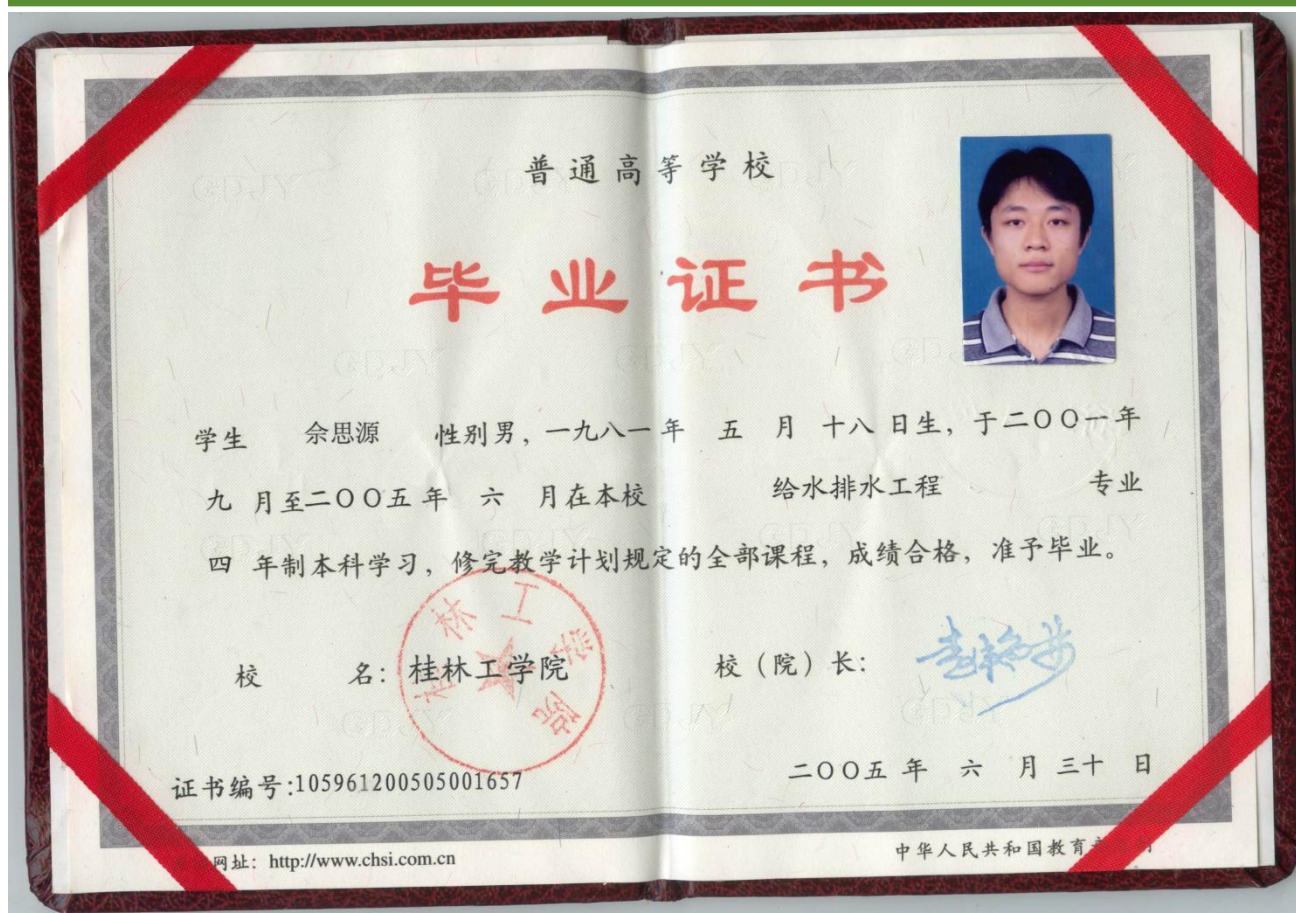 普通高等学校
毕业证书
学生 佘思源 性别男，一九八一年 五 月 十八 日生，于二〇〇一年
九 月至二〇〇五年 六 月在本校 给水排水工程 专业
四 年制本科学习，修完教学计划规定的全部课程，成绩合格，准予毕业。
桂林工学院
校 名：桂林工学院 校（院）长：
二〇〇五年 六 月 三十 日
证书编号:105961200505001657
网址：http://www.chsi.com.cn 中华人民共和国教育